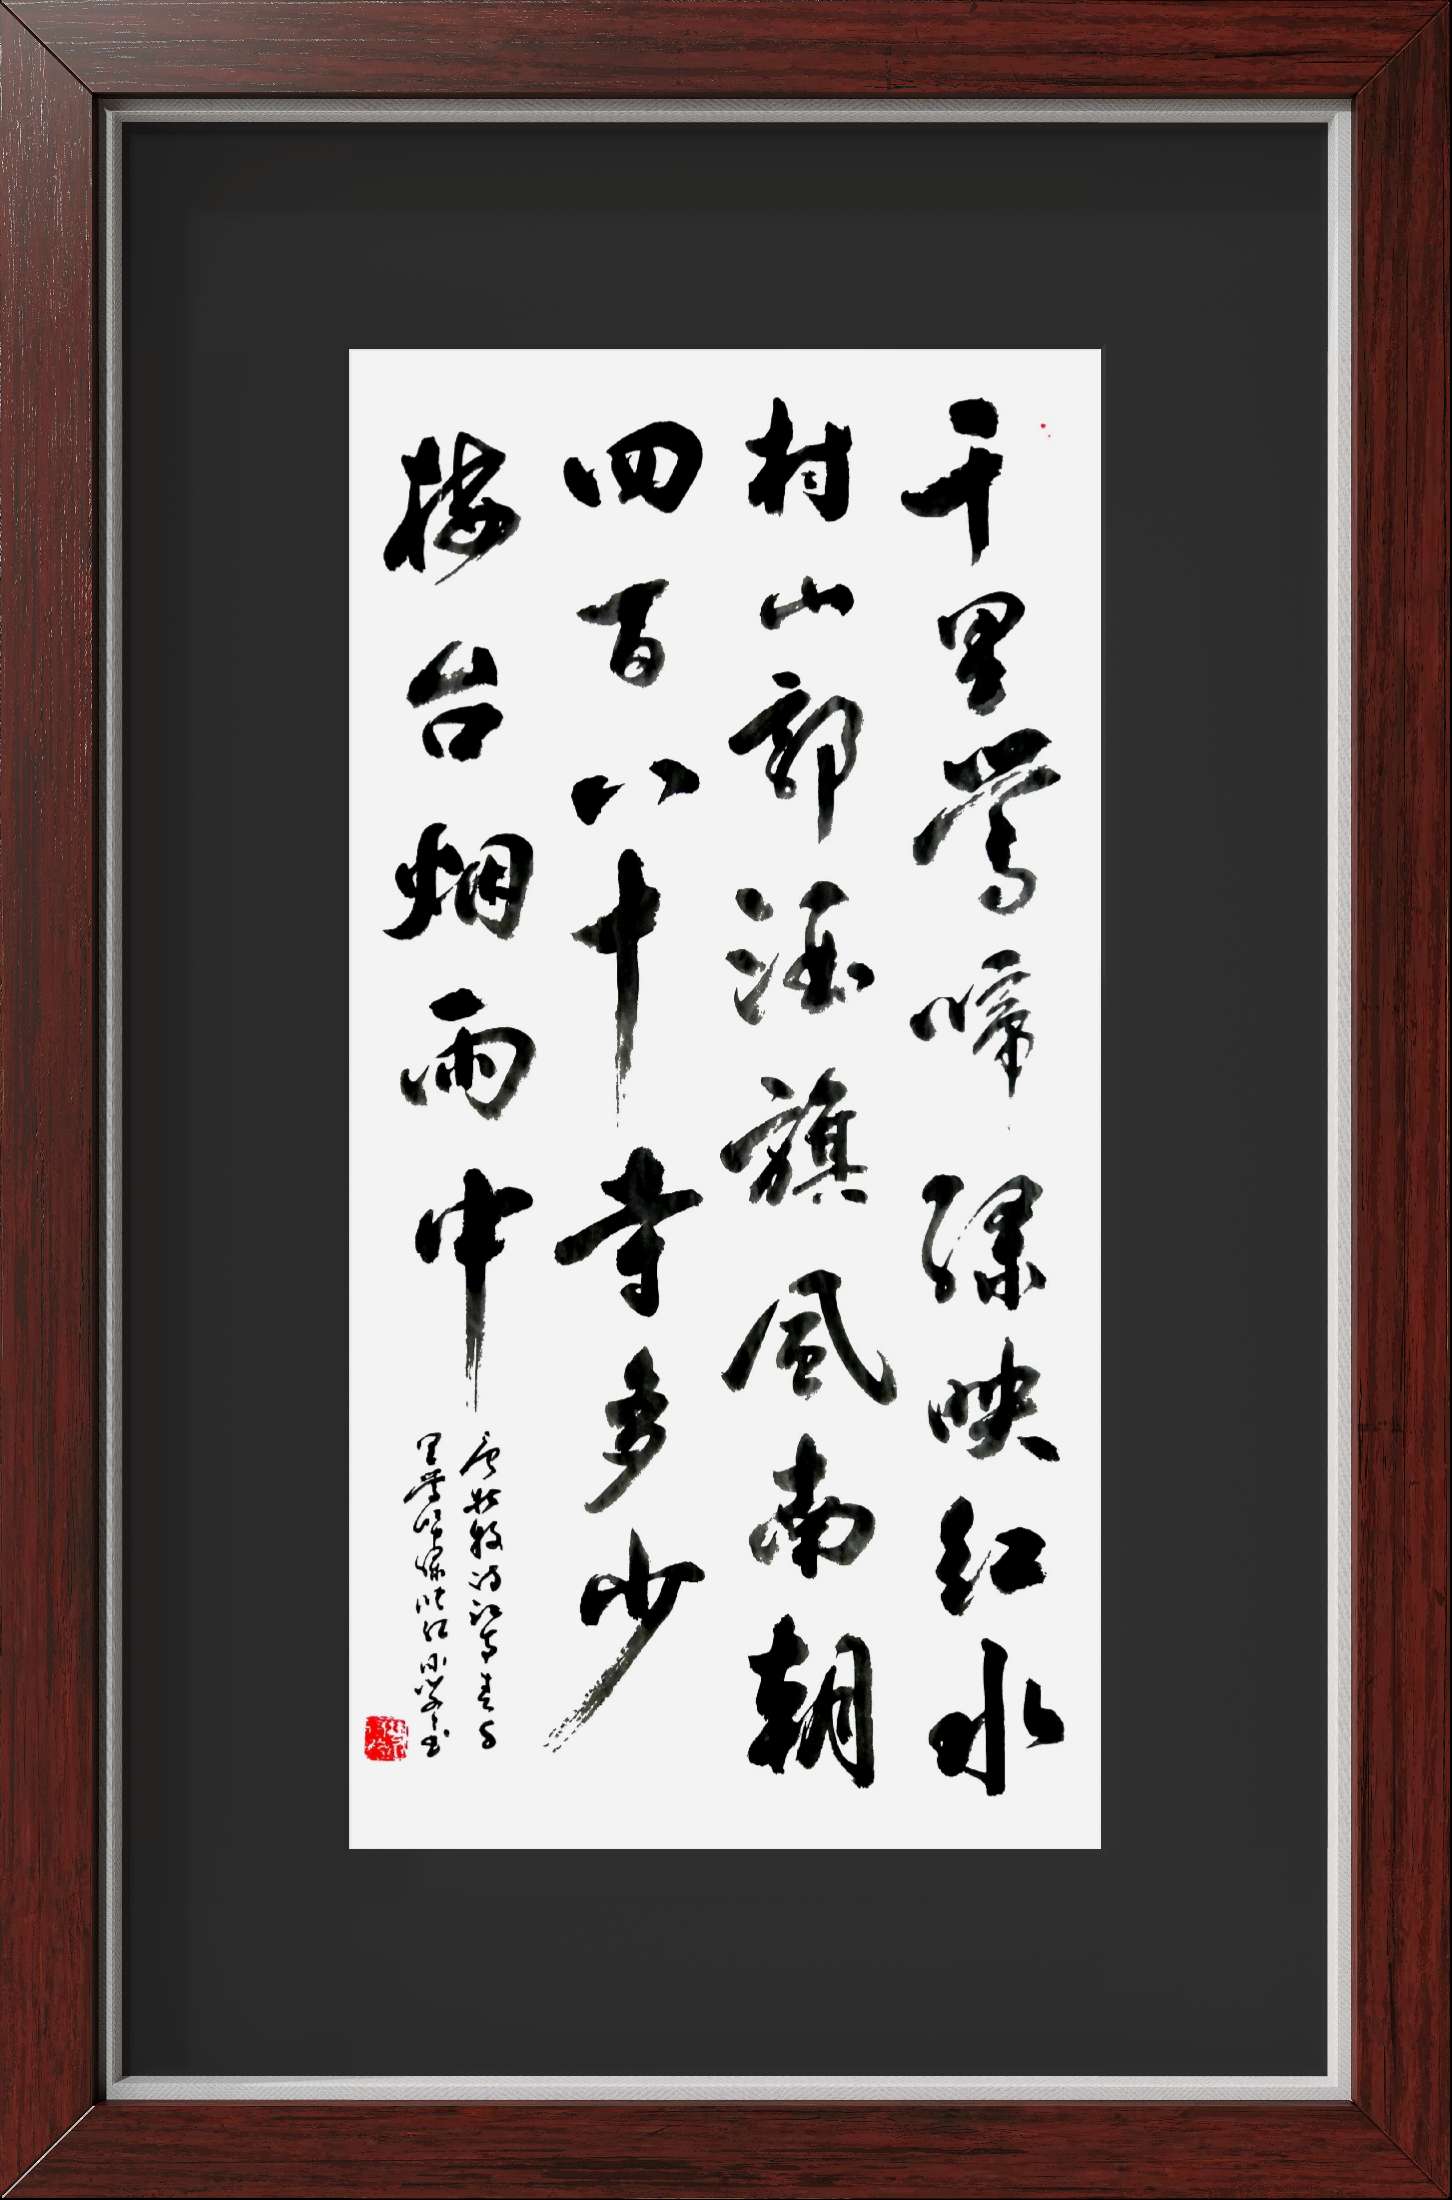 千里莺啼绿映红水
村山郭酒旗風南朝
四百八十寺多少
楼台烟雨中
唐杜牧诗江南春千
里莺啼绿映红